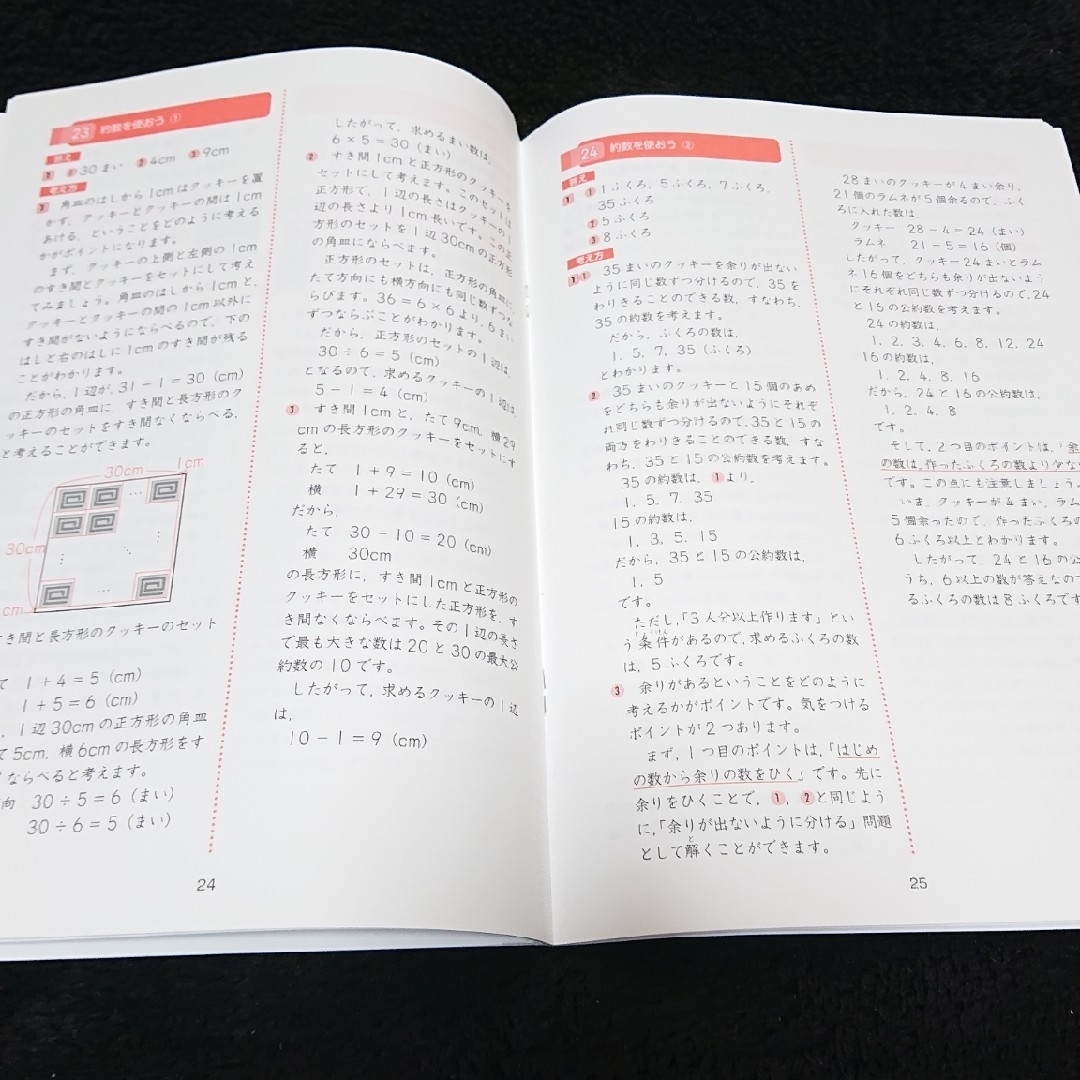 23 約数を使おう ①
答え
1 ① 30まい ② 4cm ③ 9cm
考え方
1 角皿のはしから1cmはクッキーを置
かず、クッキーとクッキーの間は1cm
あける、ということをどのように考える
かがポイントになります。
まず、クッキーの上側と左側の1cm
のすき間とクッキーをセットにして考え
てみましょう。角皿のはしから1cmと、
クッキーとクッキーの間の1cm以外に
すき間がないようにならべるので、下の
はしと右のはしに1cmのすき間が残る
ことがわかります。
だから、1辺が、31−1=30(cm)
の正方形の角皿に、すき間と長方形のク
ッキーのセットをすき間なくならべる、
と考えることができます。
30cm 1cm
30cm
cm
すき間と長方形のクッキーのセット
て 1+4=5(cm)
1+5=6(cm)
、1辺30cmの正方形の角皿
て5cm、横6cmの長方形をす
くならべると考えます。
向 30÷5=6(まい)
30÷6=5(まい)
したがって、求めるまい数は、
6×5=30(まい)
② すき間1cmと正方形のクッキーを
セットにして考えます。このセットは
正方形で、1辺の長さはクッキーの1
辺の長さより1cm長いです。この正
方形のセットを1辺30cmの正方形
の角皿にならべます。
正方形のセットは、正方形の角皿に
たて方向にも横方向にも同じ数ずつな
らびます。36=6×6より、6まい
ずつならぶことがわかります。
だから、正方形のセットの1辺は、
30÷6=5(cm)
となるので、求めるクッキーの1辺は、
5−1=4(cm)
③ すき間1cmと、たて9cm、横29
cmの長方形のクッキーをセットにす
ると、
たて 1+9=10(cm)
横 1+29=30(cm)
だから、
たて 30−10=20(cm)
横 30cm
の長方形に、すき間1cmと正方形の
クッキーをセットにした正方形を、す
き間なくならべます。その1辺の長さ
で最も大きな数は20と30の最大公
約数の10です。
したがって、求めるクッキーの1辺
は、
10−1=9(cm)
24
24 約数を使おう ②
答え
1 ① 1ふくろ、5ふくろ、7ふくろ、
35ふくろ
② 5ふくろ
③ 8ふくろ
考え方
1 ① 35まいのクッキーを余りが出ない
ように同じ数ずつ分けるので、35を
わりきることのできる数、すなわち、
35の約数を考えます。
だから、ふくろの数は、
1、5、7、35(ふくろ)
とわかります。
② 35まいのクッキーと15個のあめ
をどちらも余りが出ないようにそれぞ
れ同じ数ずつ分けるので、35と15の
両方をわりきることのできる数、すな
わち、35と15の公約数を考えます。
35の約数は、①より、
1、5、7、35
15の約数は、
1、3、5、15
だから、35と15の公約数は、
1、5
です。
ただし、「3人分以上作ります」とい
う条件があるので、求めるふくろの数
は、5ふくろです。
③ 余りがあるということをどのように
考えるかがポイントです。気をつける
ポイントが2つあります。
まず、1つ目のポイントは、「はじめ
の数から余りの数をひく」です。先に
余りをひくことで、①、②と同じよう
に、「余りが出ないように分ける」問題
として解くことができます。
28まいのクッキーが4まい余り、
21個のラムネが5個余るので、ふく
ろに入れた数は
クッキー 28−4=24(まい)
ラムネ 21−5=16(個)
したがって、クッキー24まいとラム
ネ16個をどちらも余りが出ないよ
にそれぞれ同じ数ずつ分けるので、24
と16の公約数を考えます。
24の約数は、
1、2、3、4、6、8、12、24
16の約数は、
1、2、4、8、16
だから、24と16の公約数は、
1、2、4、8
です。
そして、2つ目のポイントは、「余
の数は、作ったふくろの数より少な
です。この点にも注意しましょう。
いま、クッキーが4まい、ラム
5個余ったので、作ったふくろの
6ふくろ以上とわかります。
したがって、24と16の公
うち、6以上の数が答えなので
るふくろの数は8ふくろです
25